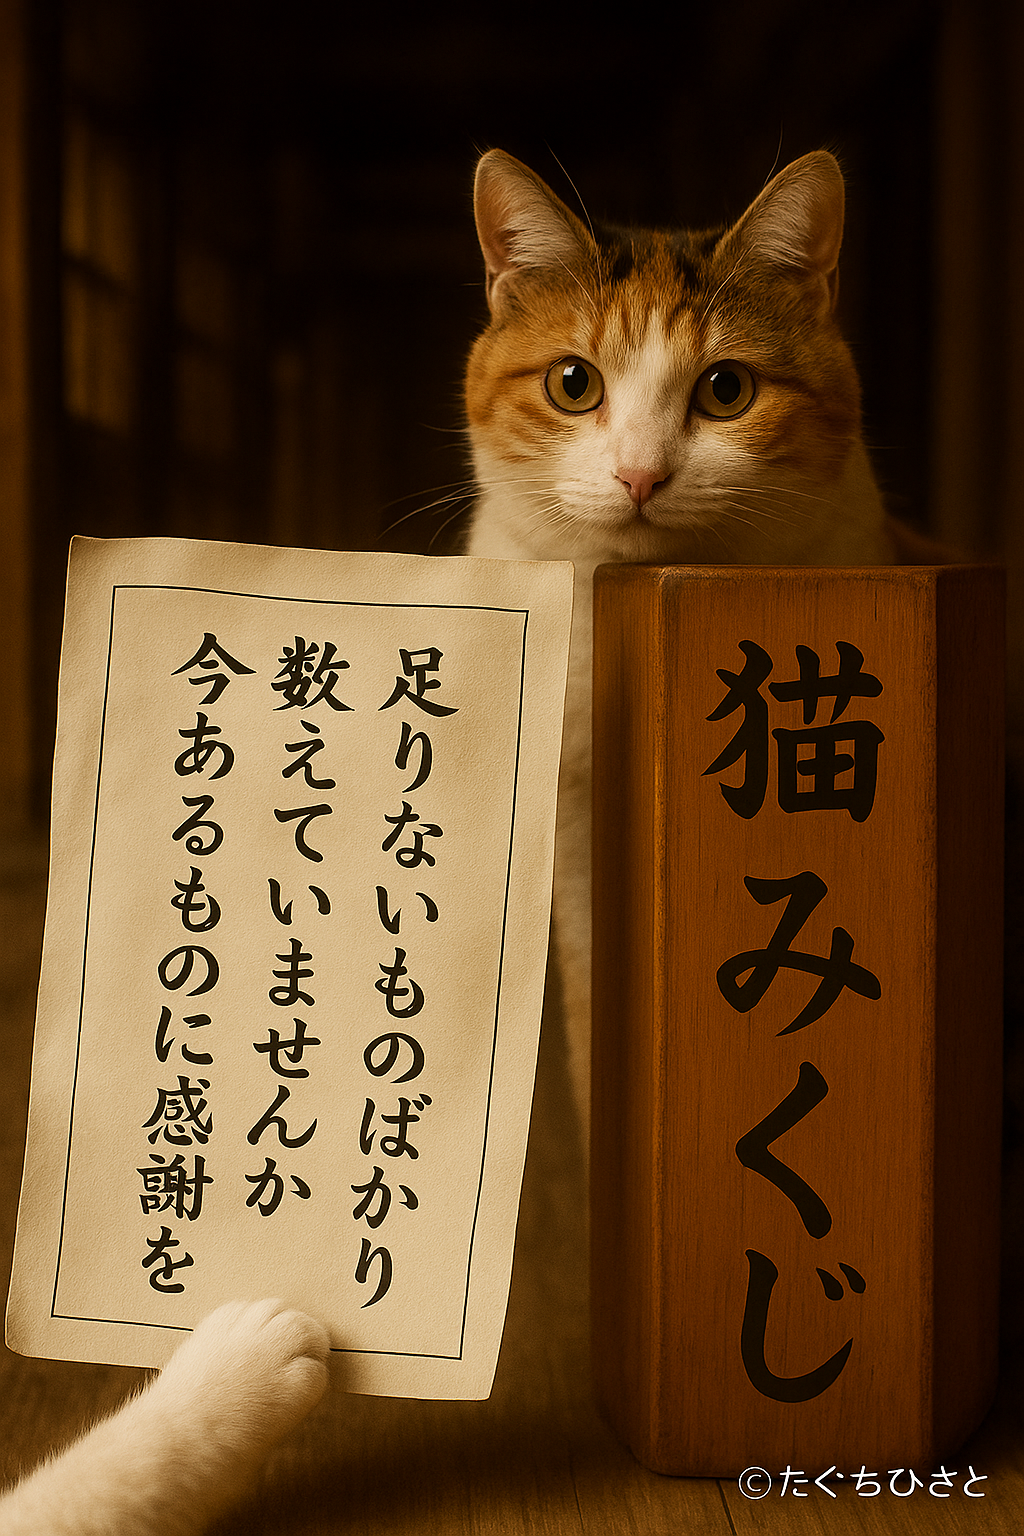 足りないものばかり
数えていませんか
今あるものに感謝を
猫みくじ
©たぐちひさと